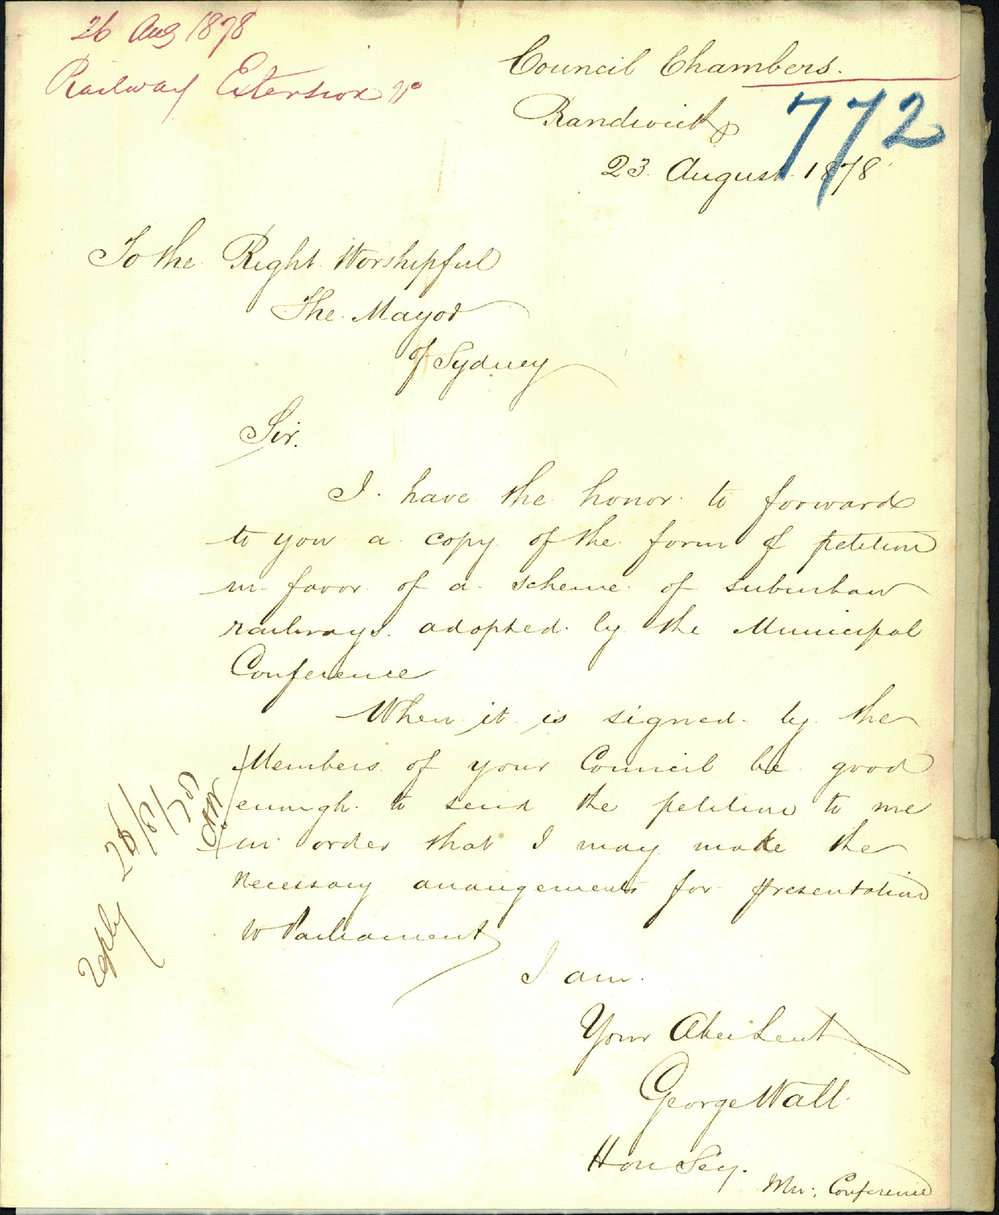 26 Aug 1878
Railway Extension
Council Chambers.
Randwick
772
23. August. 1878
To the Right Worshipful
The Mayor
of Sydney
Sir.
I have the honor to forward
to you a copy of the form of petition
in favor of a scheme of suburban
railways adopted by the Municipal
Conference
When it is signed by the
Members of your Council be good
enough to send the petition to me
in order that I may make the
necessary arrangements for presentation
to Parliament
I am.
Your Obedient
George Wall
Hon Secy.
Mun: Conference
reply 28/8/78